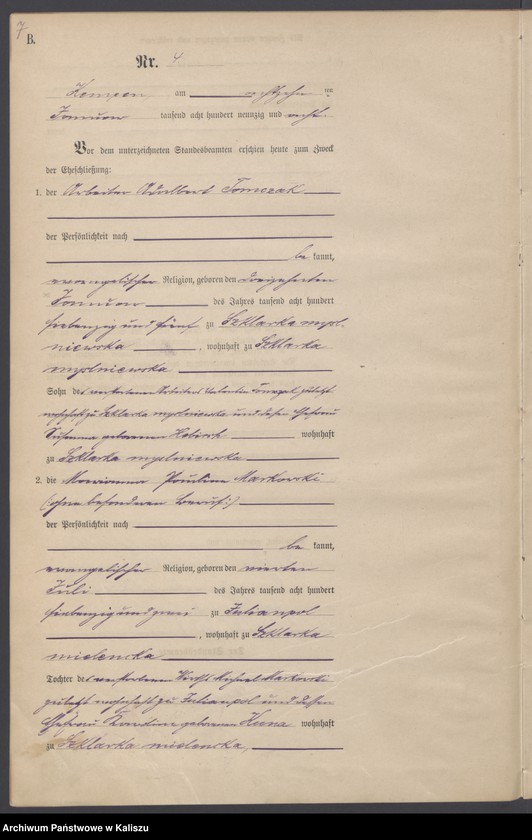 7
B.
Nr. 4
Kempen, am achtzehn ten
Januar tausend acht hundert neunzig und acht.
Vor dem unterzeichneten Standesbeamten erschien heute zum Zweck
der Eheschließung:
1. der Arbeiter Adalbert Tomczak
der Persönlichkeit nach
be kannt,
evangelischer Religion, geboren den
Januar des Jahres tausend acht hundert
siebenzig und fünf zu Szklarka mysl-
niewska, wohnhaft zu Szklarka
myslniewska
Sohn des verstorbenen Arbeiters Valentin zuletzt
wohnhaft zu Szklarka myslniewska und dessen Ehefrau
Susanna geborenen wohnhaft
zu Szklarka myslniewska
2. die Marianna Pauline Markowski
(ohne besonderen Beruf:)
der Persönlichkeit nach
be kannt,
evangelischer Religion, geboren den vierten
Juli des Jahres tausend acht hundert
siebenzig und zwei zu Julianpol
, wohnhaft zu Szklarka
mielencka
Tochter des verstorbenen Wirths Markowski
zuletzt wohnhaft zu Julianpol und dessen
Ehefrau Karoline geborenen wohnhaft
zu Szklarka mielencka,
Archiwum Państwowe w Kaliszu